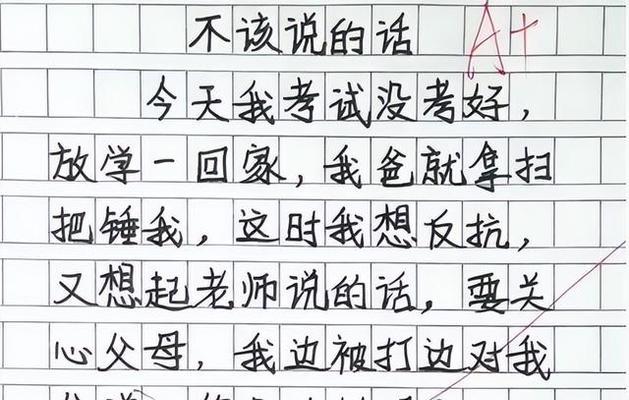 不该说的话 A+
今天我考试没考好，
放学一回家，我爸就拿扫
把锤我，这时我想反抗，
又想起老师说的话，要关
心父母，我边被打边对我